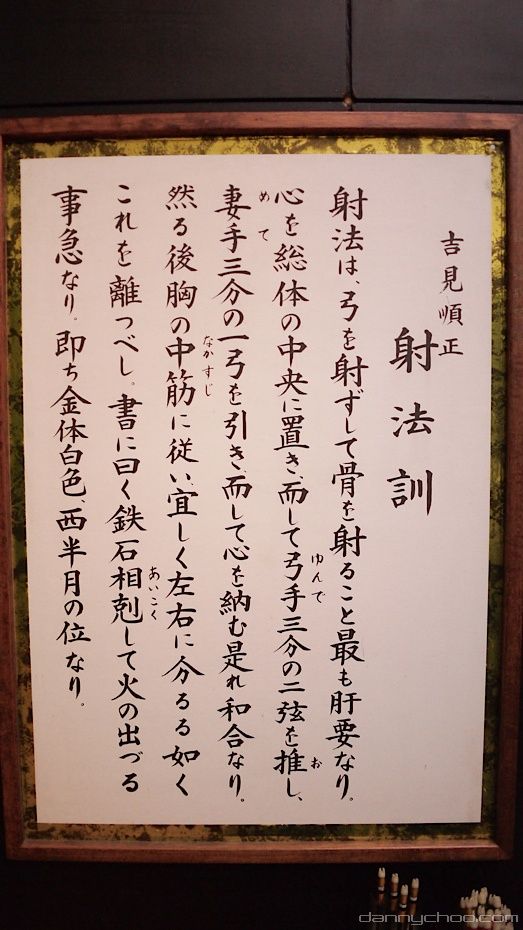 吉見順正
射法訓
射法は、弓を射ずして骨を射ること最も肝要なり。
ゆんで お
心を総体の中央に置き、而して弓手三分の二弦を推し、
めて
妻手三分の一弓を引き、而して心を納む是れ和合なり。
なかすじ
然る後胸の中筋に従い、宜しく左右に分るる如く
あいこく
これを離つべし。書に曰く鉄石相剋して火の出づる
事急なり。即ち金体白色、西半月の位なり。
dannychoo.com